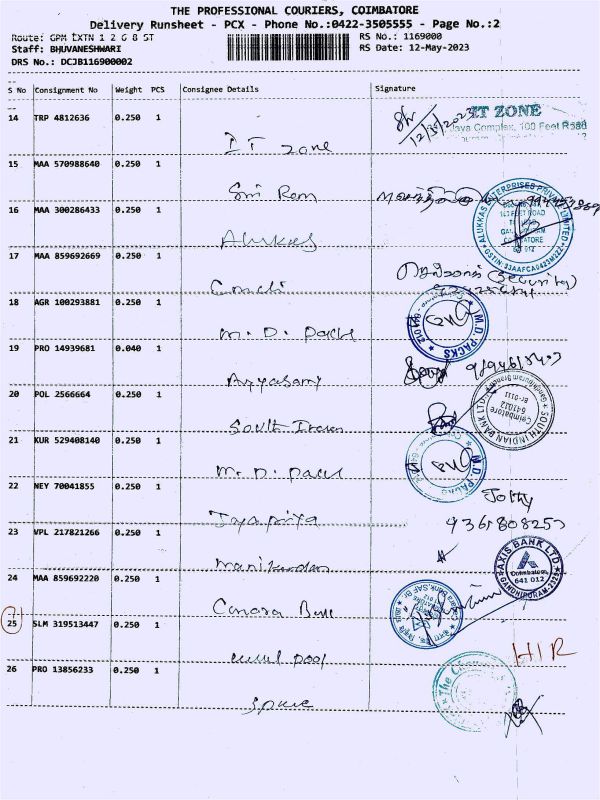 THE PROFESSIONAL COURIERS, COIMBATORE
Delivery Runsheet - PCX - Phone No.:0422-3505555 - Page No.:2
Route: GPM EXTN 1 2 G 8 ST
RS No.: 1169000
Staff: BHUVANESHWARI
RS Date: 12-May-2023
DRS No.: DCJB116900002
S No Consignment No Weight PCS Consignee Details Signature
14 TRP 4812636 0.250 1
IT ZONE
Jaya Complex, 100 Feet Road
12/5/2023
IT zone
15 MAA 570988640 0.250 1
Sri Ram
16 MAA 300286433 0.250 1
ALUKKAS ENTERPRISES PRIVATE LIMITED
COIMBATORE
Alukkas
17 MAA 859692669 0.250 1
(Security)
18 AGR 100293881 0.250 1
M.D. PACKS
M. D. Packs
19 PRO 14939681 0.040 1
Ayyasamy
20 POL 2566664 0.250 1
SOUTH INDIAN BANK LTD.
Gandhipuram Branch
Coimbatore
641012
Br-0111
South Indian
21 KUR 529408140 0.250 1
M.D. PACKS
M. D. Packs
22 NEY 70041855 0.250 1
Jolly
Jayapriya
9361808253
23 VPL 217821266 0.250 1
AXIS BANK LTD
Coimbatore
641 012
GANDHIPURAM
Manikandan
24 MAA 859692220 0.250 1
Canara Bank
25 SLM 319513447 0.250 1
HIR
26 PRO 13856233 0.250 1
The
Space